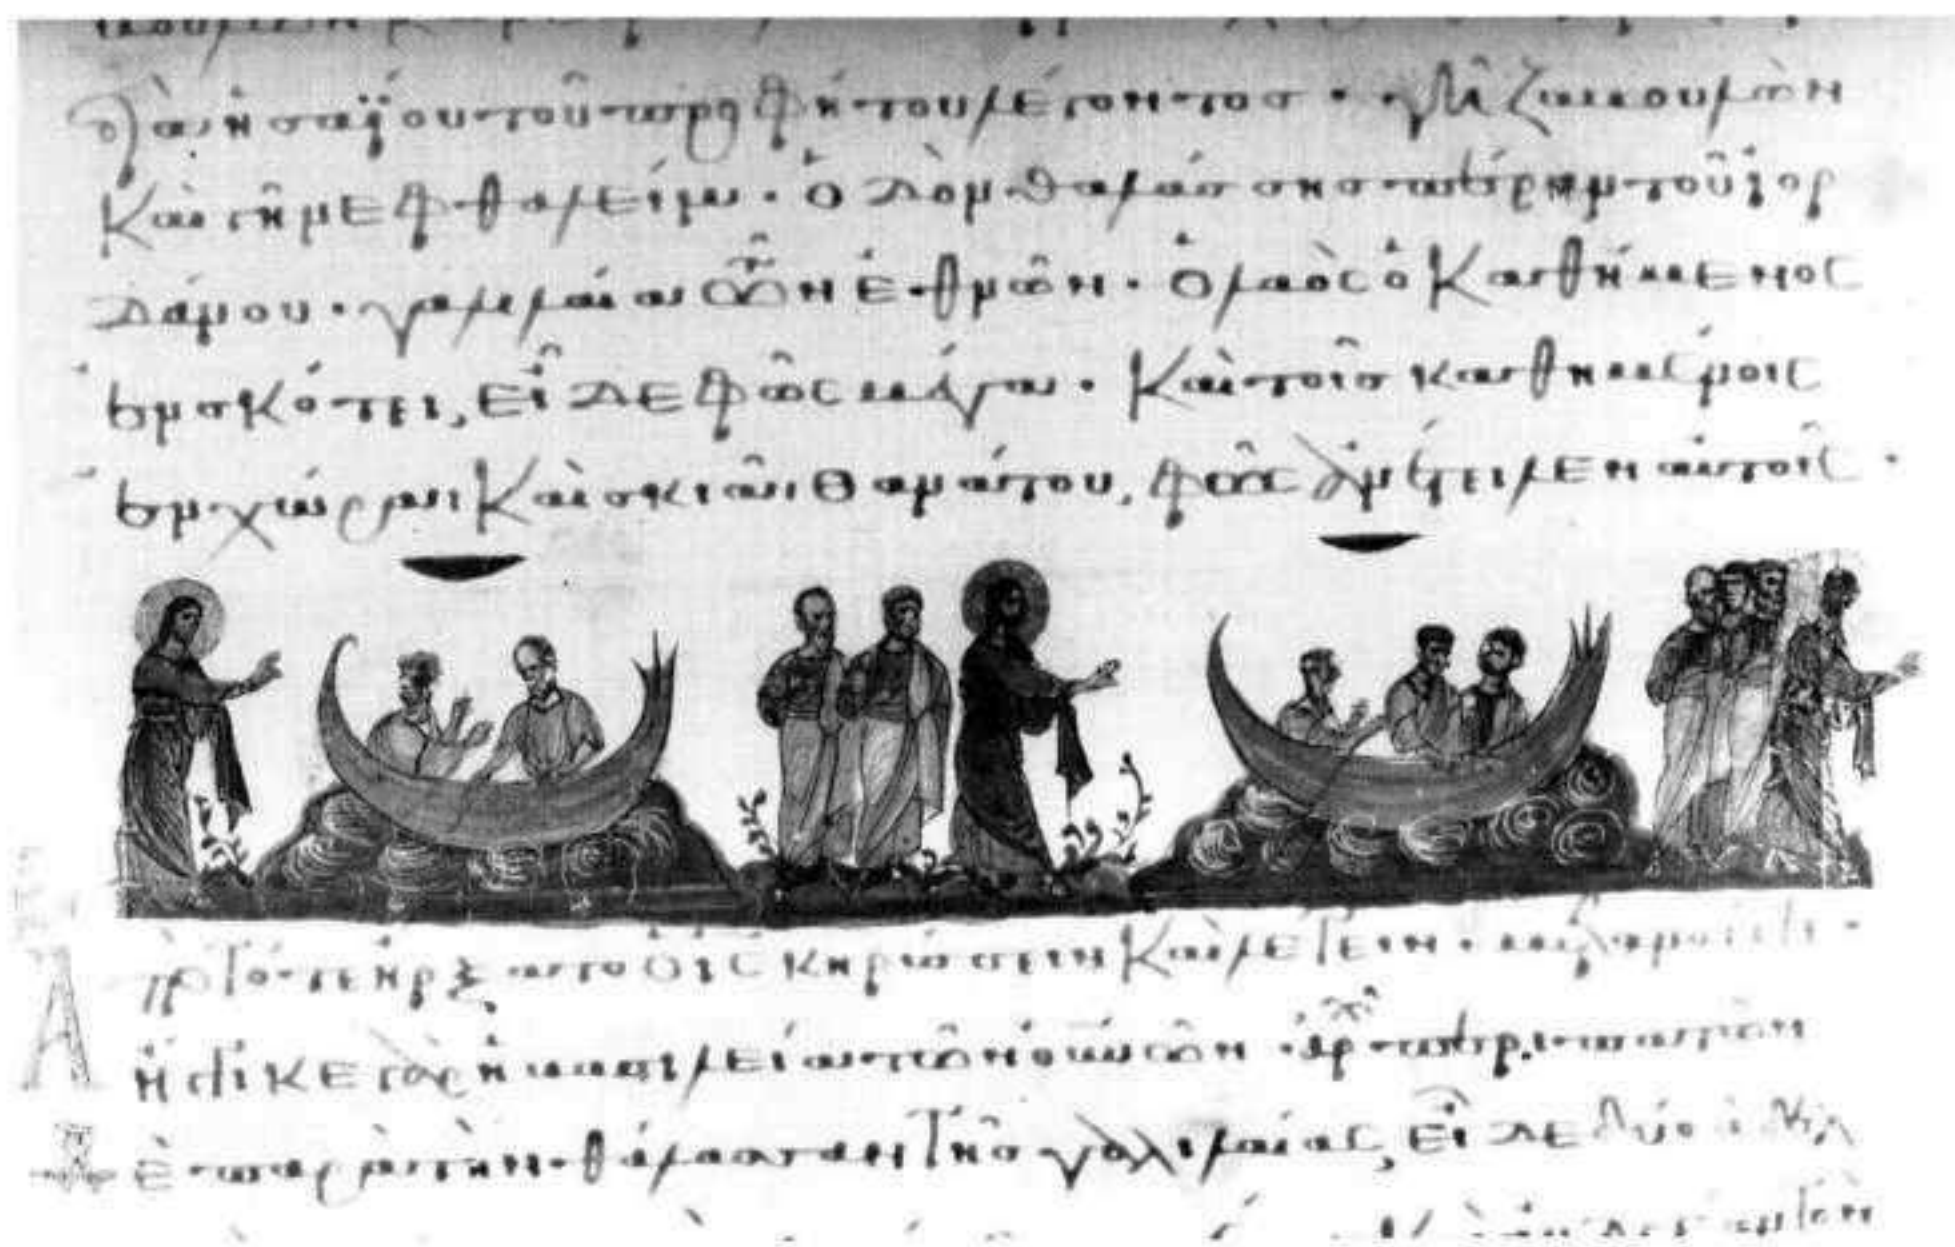 διὰ ἡσαΐου τοῦ προφήτου λέγοντος · γῆ ζαβουλὼν
καὶ γῆ νεφθαλείμ · ὁδὸν θαλάσσης πέραν τοῦ ἰορ
δάνου · γαλιλαία τῶν ἐθνῶν · ὁ λαὸς ὁ καθήμενος
ἐν σκότει, εἶδε φῶς μέγα · καὶ τοῖς καθημένοις
ἐν χώραι καὶ σκιᾶι θανάτου, φῶς ἀνέτειλεν αὐτοῖς ·
Ἀπὸ τότε ἤρξατο ὁ ις κηρύσσειν καὶ λέγειν · μετανοεῖτε ·
ἤγγικε γὰρ ἡ βασιλεία τῶν οὐνῶν · περιπατῶν
δὲ παρὰ τὴν θάλασσαν τῆς γαλιλαίας, εἶδε δύο ἀδελ